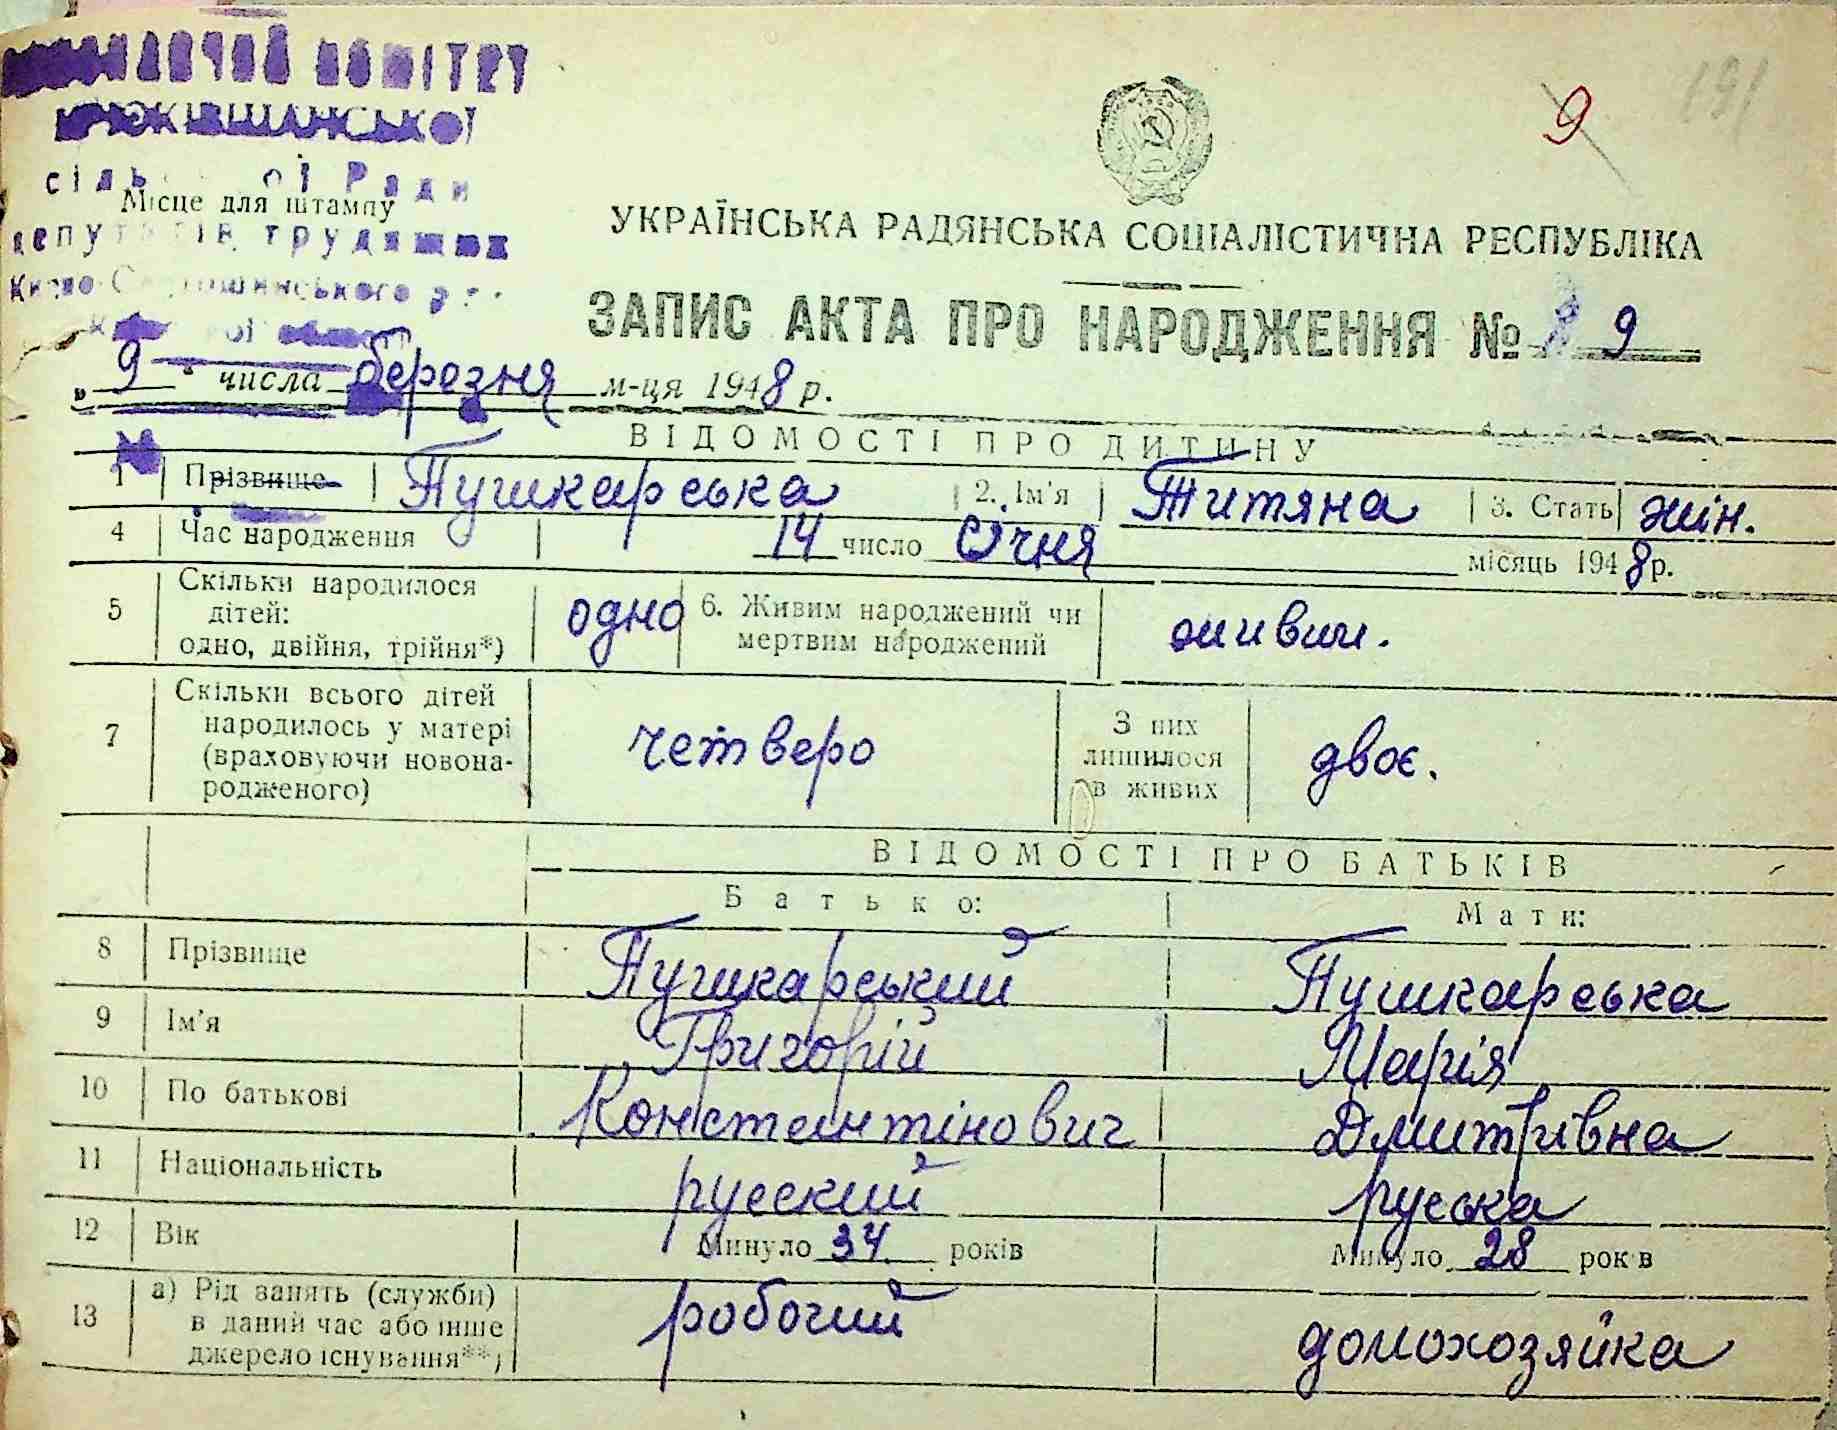 КОМІТЕТ
КРЮКІВЩАНСЬКОЇ
9
191
сіль ої Ради
Місце для штампу
депутатів трудящих
Києво-Святошинського р
УКРАЇНСЬКА РАДЯНСЬКА СОЦІАЛІСТИЧНА РЕСПУБЛІКА
ЗАПИС АКТА ПРО НАРОДЖЕННЯ № 9
„ 9 " числа березня м-ця 1948 р.
ВІДОМОСТІ ПРО ДИТИНУ
1 Прізвище Пушкарська 2. Ім'я Титяна 3. Стать жін.
4 Час народження 14 число січня місяць 1948 р.
5 Скільки народилося
дітей:
одно, двійня, трійня*) одно 6. Живим народжений чи
мертвим народжений живим.
7 Скільки всього дітей
народилось у матері
(враховуючи новона-
родженого) четверо З них
лишилося
в живих двоє.
ВІДОМОСТІ ПРО БАТЬКІВ
Батько: Мати:
8 Прізвище Пушкарський Пушкарська
9 Ім'я Григорій Марія
10 По батькові Константінович Дмитрівна
11 Національність русский руська
12 Вік Минуло 34 років Минуло 28 років
13 а) Рід занять (служби)
в даний час або інше
джерело існування**) робочий домохозяйка